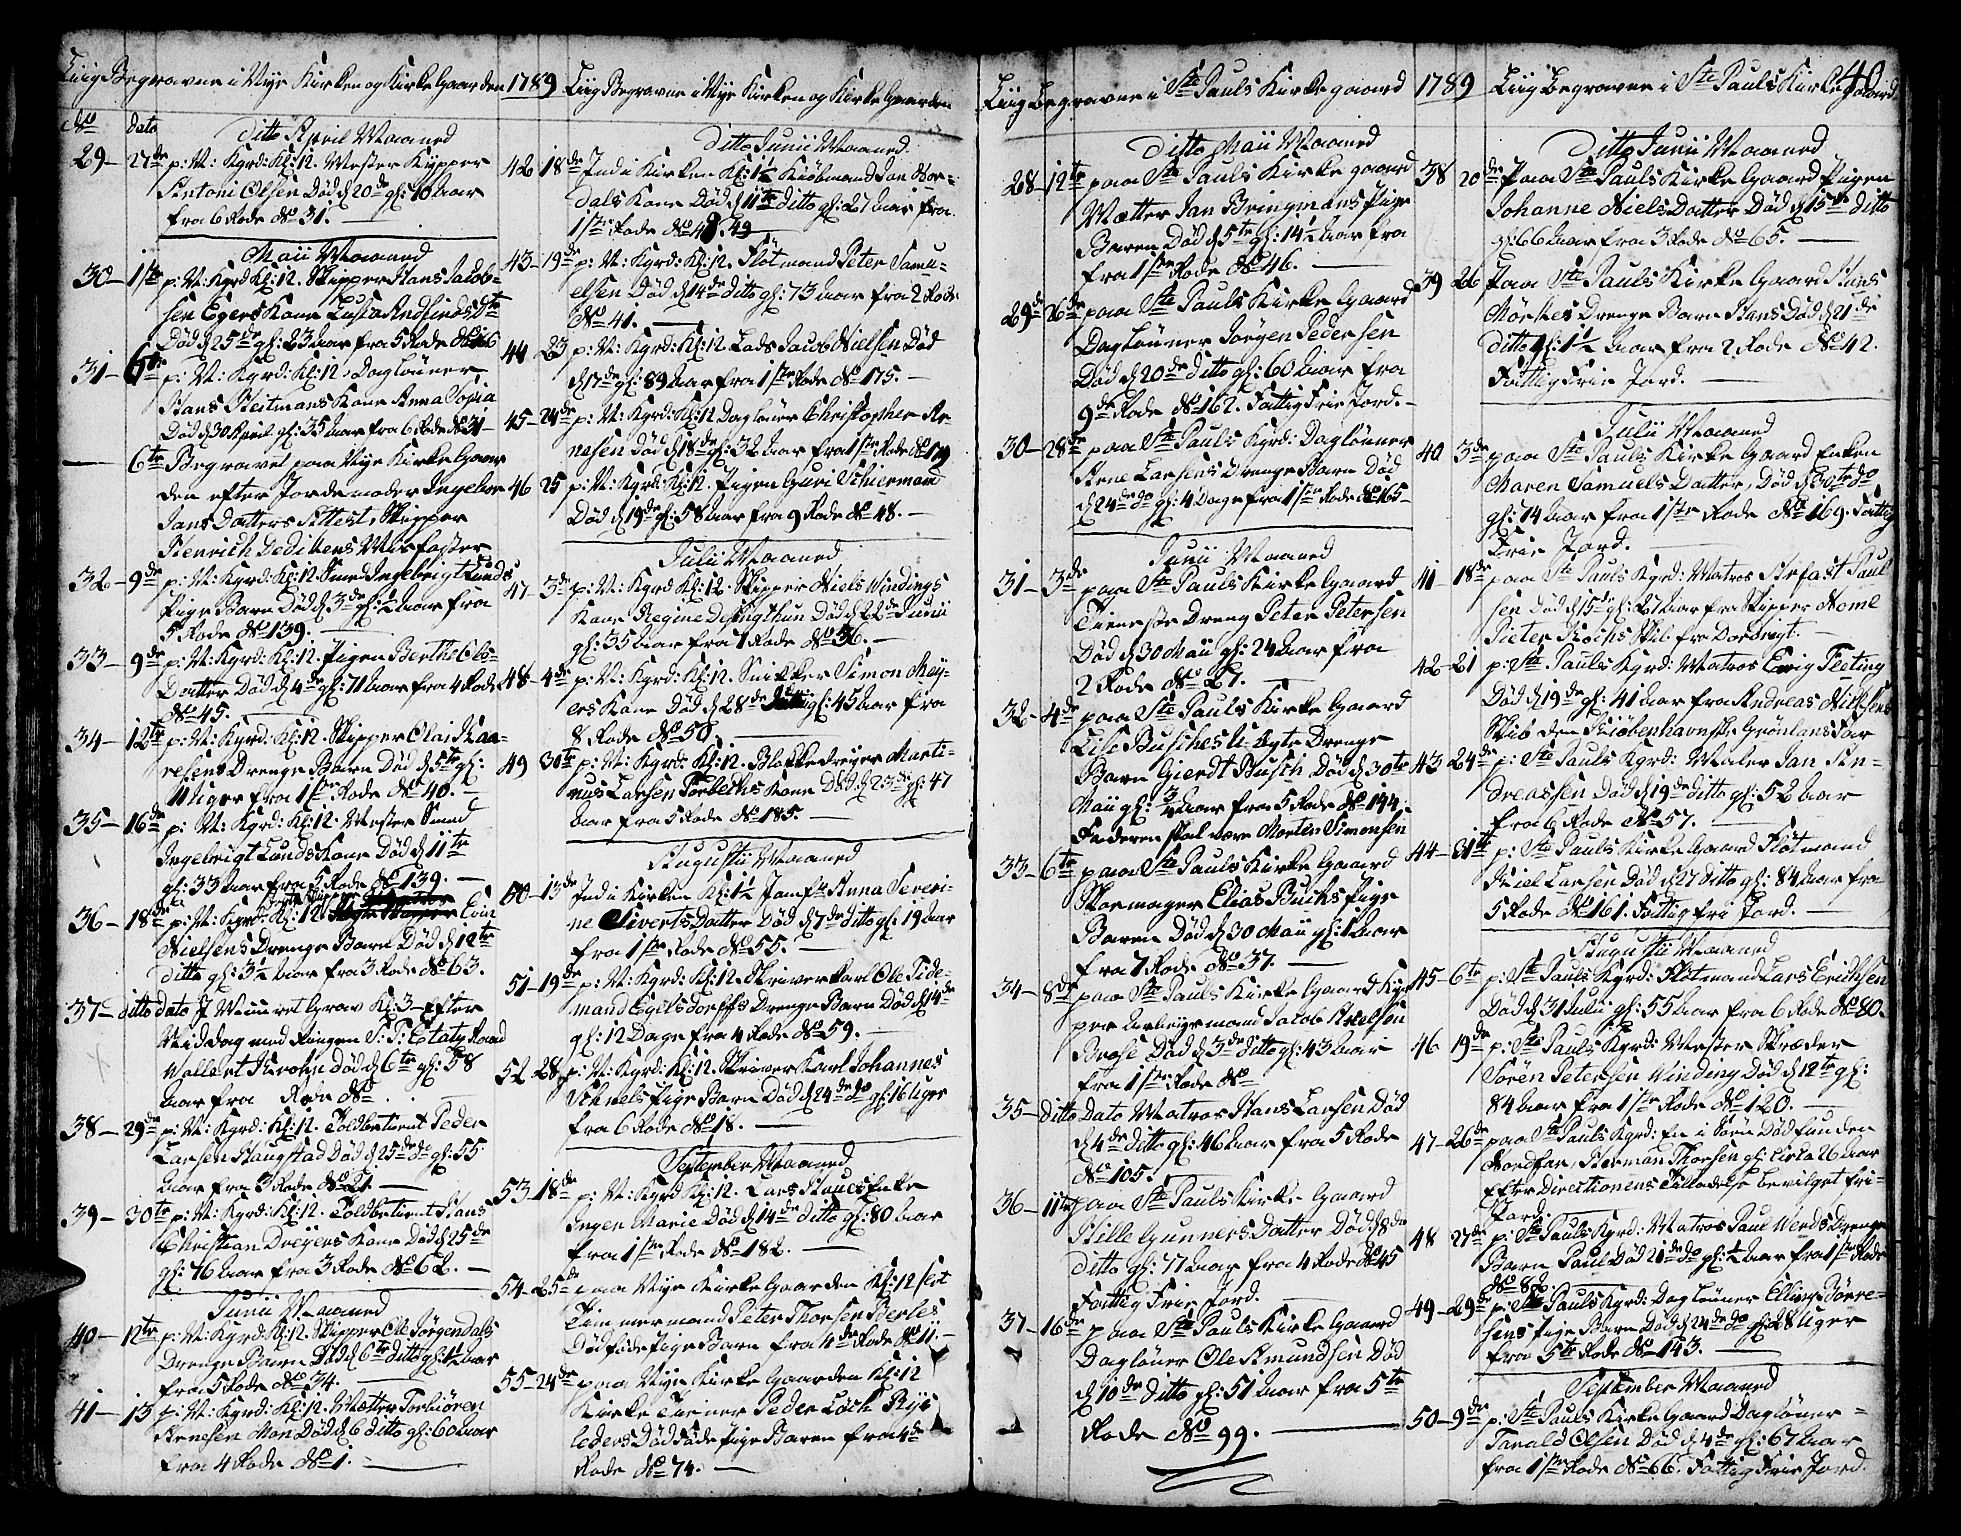 Liig Begravne i Nye Kirken og Kirke Gaarden 1789
No dato
Ditto April Maaned
29 – 27de p: N: Kgrd: Kl: 12. Mester Kypper
Antoni Olsen Død d 20de gl: 70 aar
fra 6 Rode No 31.
Maii Maaned
30 – 1ste p: N: Kgrd Kl: 12. Skipper Hans Jacob-
sen Egers Kone
Død d 25de gl: 23 aar fra 5 Rode No 166
31 – 6te p: N: Kgrd: Kl: 12. Dagløner
Hans Heitmans Kone Anna Sopia
Død d 30 April gl: 35 aar fra 6 Rode No 31
– 6te Begravet paa Nye Kirke Gaar
den efter Jordemoder Ingebor
Jans Datters Attest, Skipper
Henrich Dedikens Misfoster
32 – 9de p: N: Kgrd: Kl: 12. Smed Ingebrigt Lunds
Pige Barn Død d 3de gl: ½ aar fra
5 Rode No 139.
33 – 9de p: N: Kgrd: Kl: 12. Pigen Berthe Ols-
Datter Død d 4de gl: 71 aar fra 4 Rode
No 45.
34 – 12te p: N: Kgrd: Kl: 12. Skipper Olai Haa-
resens Drenge Barn Død d 5te gl:
11 uger fra 1ste Rode No 40.
35 – 16de p: N: Kgrd: Kl: 12. Mester Smed
Ingebrigt Lunds Kone Død d 11te
gl: 33 aar fra 5 Rode No 139.
36 – 18de p: N: Kgrd: Kl: 12 Even
Nielsens Drenge Barn Død d 12te
ditto gl: 3½ aar fra 3 Rode No 63.
37 – ditto dato J Muuret Grav Kl: 3 Efter
Middag med Ringen S: T: Etatz Raad
Wollert Krohn Død d 6te gl: 58
aar fra Rode No
38 – 29de p: N: Kgrd: Kl: 12. Toldbetient Peder
Larsen Haugstad Død d 25de do gl: 55
aar fra 3 Rode No 21
39 – 30te p: N: Kgrd: Kl: 12. Toldbetient Hans
Christian Dreyers Kone Død d 25de
gl: 76 aar fra 3 Rode No 62.
Junii Maaned
40 – 12te p: N: Kgrd: Kl: 12. Skipper Ole Jørgen Dals
Drenge Barn Død d 6te ditto gl: 1½ aar
fra 5 Rode No 34.
41 – 13 p: N: Kgrd: Kl: 12. Mætter Torbiören
Arnesen Mon Død d 6 ditto gl: 60 aar
fra 4 Rode No 1.
Liig Begravne i Nye Kirken og Kirke Gaarden
Ditto Junii Maaned
42 18de Ind i Kirken Kl: 1½ Kiøbmand Jan Hor-
dals Kone Død d 11te ditto gl: 27 aar fra
1ste Rode No 49
43 – 19de p: N: Kgrd: Kl: 12. Flötmand Peter Samu-
elsen Død d 14de ditto gl: 73 aar fra 2 Rode
No 41.
44 23 p: N: Kgrd: Kl: 12 Lods Jacob Nielsen Død
d 17de gl: 89 aar fra 1ste Rode No 175.
45 – 24de p: N: Kgrd: Kl: 12 Dagløner Christopher Ar-
nesen Død d 18de gl: 32 aar fra 1ste Rode No 179
46 25 p: N: Kgrd: Kl: 12. Pigen Guri Schiermand
Død d 19de gl: 58 aar fra 9 Rode No 48.
Julii Maaned
47 – 3de p: N: Kgrd Kl: 12. Skipper Niels Windings
Kone Regine Desingthun Død d 22de Junii
gl: 35 aar fra 7 Rode No 56.
48 – 4de p: N: Kgrd: Kl: 12. Snikker Simon Mey-
ers Kone Død d 28de gl: 45 aar fra
8 Rode No 50.
49 30te p: N: Kgrd: Kl: 12. Blokkedreyer Marti-
nus Larsen Torbechs Kone Død d 23de gl: 47
aar fra 5 Rode No 185.
Augustii Maaned
50 – 13de Ind i Kirken Kl: 1½ Jomfr Anna Severi-
ne Siverts Datter Død d 7de ditto gl: 19 aar
fra 1ste Rode No 55.
51 – 19de p: N: Kgrd: Kl: 12. Skriverkarl Ole Tide-
mand Egilsdorffs Drenge Barn Død d 14de
gl: 12 Dage fra 4 Rode No 59.
52 28 p: N: Kgrd: Kl: 12. Skriver Karl Johannes
Schnels Pige Barn Død d 24de do gl: 16 uger
fra 6 Rode No 18.
September Maaned
53 – 18de p: N: Kgrd Kl: 12. Lars Haues Enke
Ingen Marie Død d 14de ditto gl: 80 aar
fra 1ste Rode No 182.
54 – 25de paa Nye Kirke Gaarden Kl: 12 slet
Timmermand Peter Thorsen Berses
Dødføde Pige Barn fra 4de Rode No 11.
55 – 24de paa Nye Kirke Gaarden Kl: 12
Kirke Tiener Peder Loch Ryi
leders Dødføde Pige Barn fra 4de
Rode No 74.
Liig Begravne i Ste Pauls Kirke gaard 1789
Ditto Maii Maaned
28 – 12te paa Ste Pauls Kirke gaard
Mætter Jan Bringmans Pige
Barn Død d 5te gl: 14½ aar fra
fra 1ste Rode No 46.
29de 26de paa Ste Pauls Kirke Gaard
Dagløner Jørgen Pedersen
Død d 20de ditto gl: 60 aar fra
9de Rode No 162. Fattig Frie Jord.
30 – 28de paa Ste Pauls Kgrd: Dagløner
Arne Larsens Drenge Barn Død
d 24de do gl: 4 Dage fra 1ste Rode No 165
Junii Maaned
31 – 3de paa Ste Pauls Kirke Gaard
Tieneste Dreng Peter Petersen
Død d 30 Maii gl: 24 aar fra
2 Rode No 27.
32 – 4de paa Ste Pauls Kirke Gaard
Lise Busches U-Egte Drenge
Barn Gierdt Busch Død d 30te
Maii gl: ¾ aar fra 5 Rode No 144.
Faderen skal være Morten Simonsen
33 – 6te paa Ste Pauls Kirke Gaard
Skomager Elias Buchs Pige
Barn Død d 30 Maii gl: 1 aar
fra 7 Rode No 37.
34 – 8de paa Ste Pauls Kirke Gaard Kyp
per Jacob Axelsen
Brose Død d 3de ditto gl: 43 aar
fra 1ste Rode No
35 – ditto Dato Matros Hans Larsen Død
d 4de ditto gl: 46 aar fra 5 Rode
No 105.
36 – 11te paa Ste Pauls Kirke Gaard
Hille Gunners Datter Død d 8de
ditto gl: 71 aar fra 4 Rode No 45
Fattig Frie Jord.
37 – 16de paa Ste Pauls Kirke Gaard
Dagløner Ole Amundsen Død
d 10de ditto gl: 51 aar fra 5te
Rode No 99.
Liig Begravne i Ste Pauls Kirke Gaard
40
Ditto Junii Maaned
38 20de Paa Ste Pauls Kirke Gaard Pigen
Johanne Niels Datter Død d 15de ditto
gl: 66 aar fra 3 Rode No 65.
39 26 Paa Ste Pauls Kirke Gaard Hans
Mörkes Drenge Barn Hans Død d 21de
ditto gl: 1½ aar fra 2 Rode No 42.
Fattig Frie Jord.
Julii Maaned
40 3de paa Ste Pauls Kirke Gaard Enken
Maren Samuels Datter, Død d 30te do
gl: 74 aar fra 1ste Rode No 169. Fattig
Frie Jord.
41 18de paa Ste Pauls Kgrd: Matros Arfast Paul
sen Død d 15de gl: 27 aar fra Skipper Nome
Pieter Kochs Skib fra Dordrigt.
42 – 21 p: Ste Pauls Kgrd: Matros Ewig Feeting
Død d 19de gl: 41 aar fra Andreas Nielsens
Skib den Kiöbenhavnske Grönlans Far
43 24de p: Ste Pauls Kgrd: Maler Jan An-
dreassen Død d 19de ditto gl: 52 aar
fra 6 Rode No 57.
44 – 31te p: Ste Pauls Kirke Gaard Flötmand
Niel Larsen Død d 27 ditto gl: 84 aar fra
5 Rode No 161. Fattig fri Jord.
Augustii Maaned
45 – 6te p: Ste Pauls Kgrd: Flötmand Lars Erichsen
Død d 31 Julii gl: 55 aar fra 6 Rode No 80.
46 19de p: Ste Pauls Kgrd: Mester Skræder
Sören Petersen Winding Død d 12te gl:
84 aar fra 1ste Rode No 120.
47 – 26de paa Ste Pauls Kgrd: En i Søen Død funden
Nordfar, Herman Thorsen gl: Cirka 26 aar
Efter Directionens Tilladelse bevilget fri-
Jord.
48 27de p: Ste Pauls Kgrd: Matros Paul Werds Drenge
Barn Paul Død 21de do gl: ½ aar fra 1ste Rode
No 82.
49 – 29de p: Ste Pauls Kgrd: Dagløner Elling Börre-
sens Pige Barn Død d 24de do gl: 28 uger
fra 5te Rode No 143.
September Maaned
50 – 9de p: Ste Pauls Kirke Gaard Dagløner
Tarald Olsen Død d 4de gl: 67 aar
fra 1ste Rode No 66. Fattig Frie Jord.